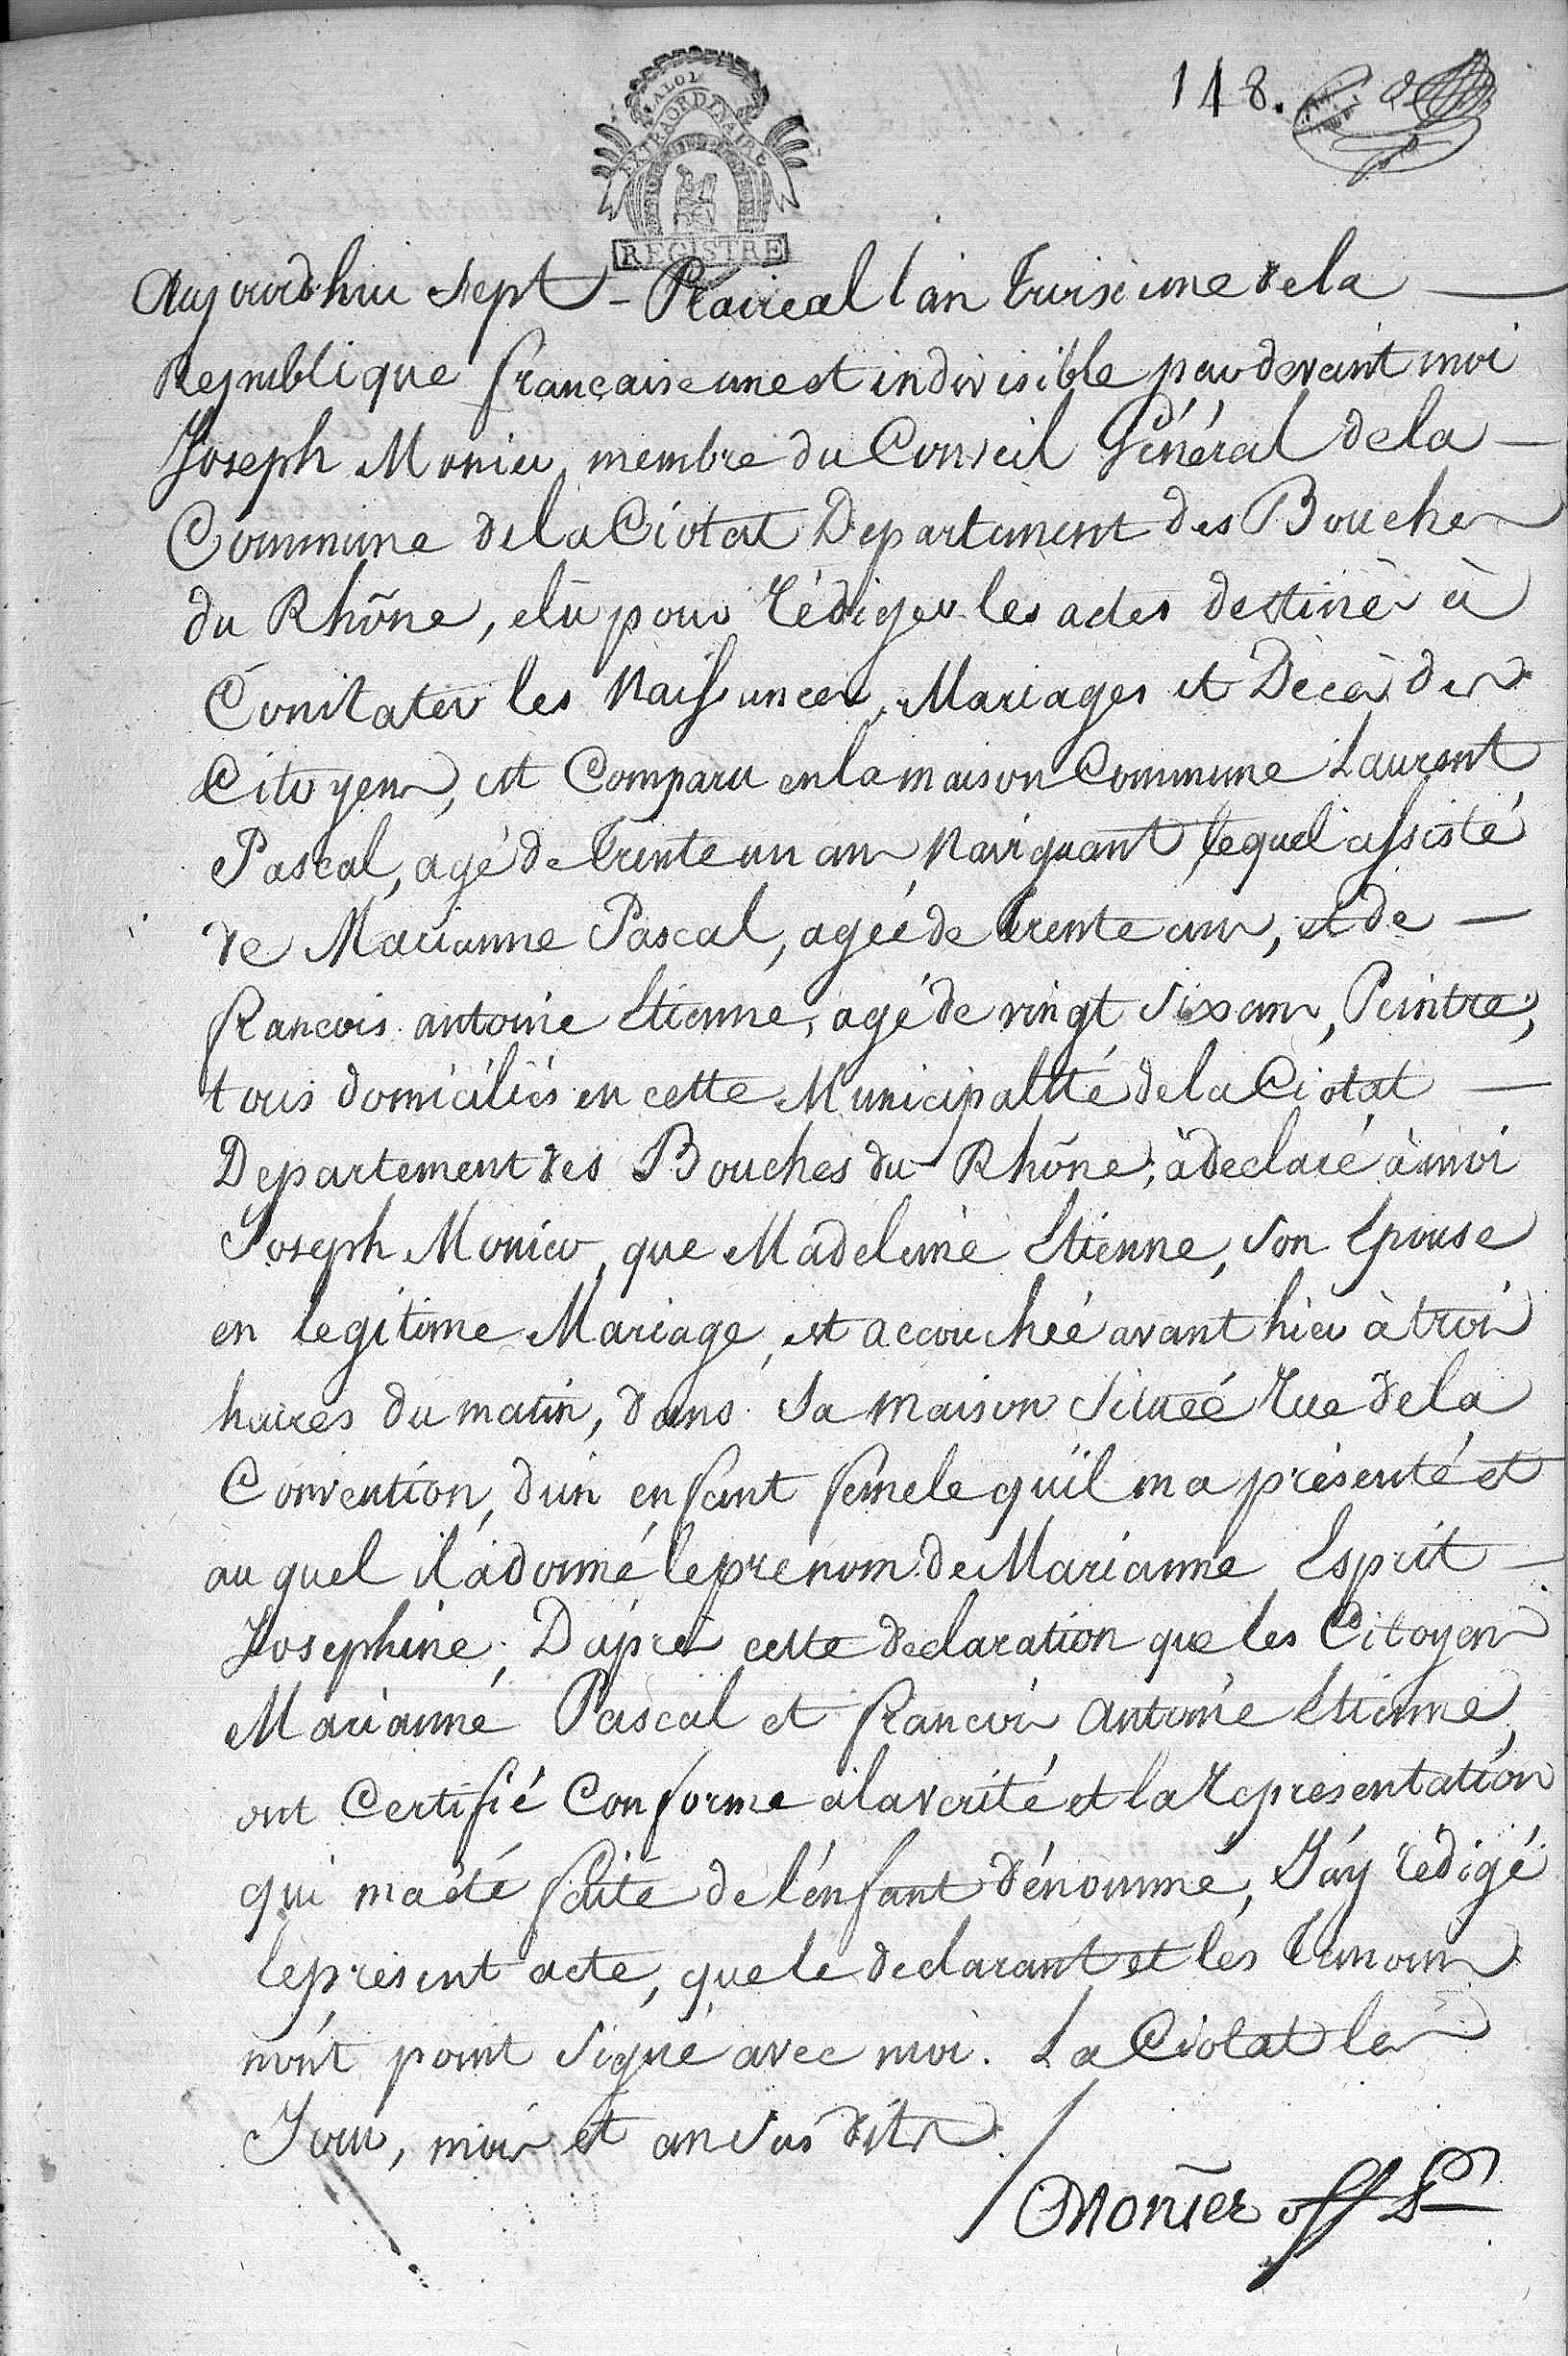 148.
LA LOI
EXTRAORDINAIRE
REGISTRE
Aujourdhui sept Flaireal lan Troisieme dela
Republique francaise une et indivisible par devant moi
Joseph Monier, membre du Conseil Général dela
Commune dela Ciotat Departement des Bouches
du Rhône, elu pour rédiger les actes destinés à
Constater les Naissances, Mariages et Décès des
Citoyens, est Comparu en la maison Commune Laurent
Pascal, agé de trente un ans Naviguant lequel assisté
de Marianne Pascal, agée de trente ans, et de
francois antoine Etienne, agé de vingt six ans, Peintre,
tous domiciliés en cette Municipalité dela Ciotat
Departement des Bouches du Rhône, à declaré à moi
Joseph Monier, que Madeleine Etienne, son Epouse
en legitime Mariage, est accouchée avant hier à trois
heures du matin, dans sa maison située rue dela
Convention, dun enfant femele quil ma présenté et
au quel il à donné le prenom de Marianne Esprit
Josephine, Daprès cette declaration que les Citoyens
Marianne Pascal et francois antoine Etienne,
ont Certifié Conforme à la verité et la représentation
qui ma été faite de lénfant dénommé, Jáy rédigé
le présent acte, que le declarant et les temoins
nónt point signé avec moi. La Ciotat les
Jour, mois et an susdits.
Monier off